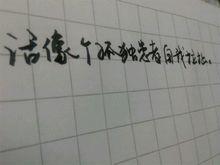 活像个孤独患者自我拉扯。